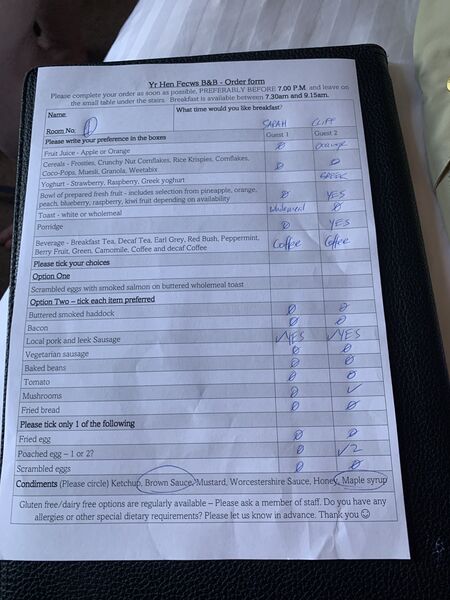 Yr Hen Fecws B&B - Order form
Please complete your order as soon as possible, PREFERABLY BEFORE 7.00 P.M. and leave on
the small table under the stairs. Breakfast is available between 7.30am and 9.15am.
Name. What time would you like breakfast?
Room No.
SARAH CLIFF
Please write your preference in the boxes Guest 1 Guest 2
Fruit Juice - Apple or Orange Ø orange
Cereals - Frosties, Crunchy Nut Cornflakes, Rice Krispies, Cornflakes,
Coco-Pops, Muesli, Granola, Weetabix Ø Ø
Yoghurt - Strawberry, Raspberry, Greek yoghurt GREEK
Bowl of prepared fresh fruit - includes selection from pineapple, orange,
peach, blueberry, raspberry, kiwi fruit depending on availability Ø YES
Toast - white or wholemeal Wholemeal Ø
Porridge Ø YES
Beverage - Breakfast Tea, Decaf Tea, Earl Grey, Red Bush, Peppermint,
Berry Fruit, Green, Camomile, Coffee and decaf Coffee Coffee Coffee
Please tick your choices
Option One
Scrambled eggs with smoked salmon on buttered wholemeal toast
Option Two – tick each item preferred
Buttered smoked haddock Ø Ø
Bacon Ø Ø
Local pork and leek Sausage ✓YES ✓YES
Vegetarian sausage Ø Ø
Baked beans Ø Ø
Tomato Ø Ø
Mushrooms Ø ✓
Fried bread Ø Ø
Please tick only 1 of the following
Fried egg Ø Ø
Poached egg – 1 or 2? Ø ✓2
Scrambled eggs Ø Ø
Condiments (Please circle) Ketchup, Brown Sauce, Mustard, Worcestershire Sauce, Honey, Maple syrup
Gluten free/dairy free options are regularly available – Please ask a member of staff. Do you have any
allergies or other special dietary requirements? Please let us know in advance. Thank you ☺